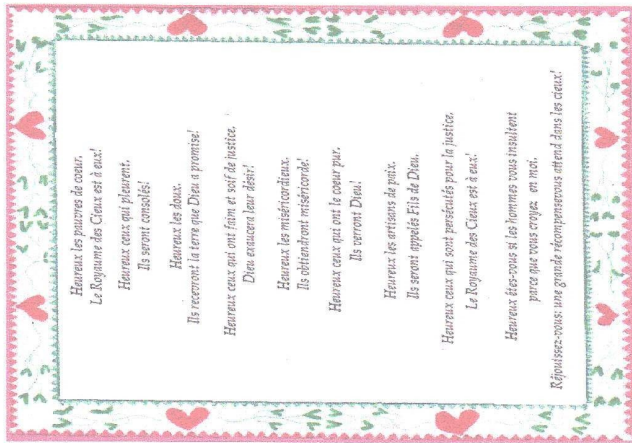 Heureux les pauvres de coeur.
Le Royaume des Cieux est à eux!
Heureux ceux qui pleurent.
Ils seront consolés!
Heureux les doux.
Ils recevront la terre que Dieu a promise!
Heureux ceux qui ont faim et soif de justice.
Dieu exaucera leur désir!
Heureux les miséricordieux.
Ils obtiendront miséricorde!
Heureux ceux qui ont le coeur pur.
Ils verront Dieu!
Heureux les artisans de paix.
Ils seront appelés Fils de Dieu.
Heureux ceux qui sont persécutés pour la justice.
Le Royaume des Cieux est à eux!
Heureux êtes-vous si les hommes vous insultent
parce que vous croyez en moi.
Réjouissez-vous: une grande récompensevous attend dans les cieux!